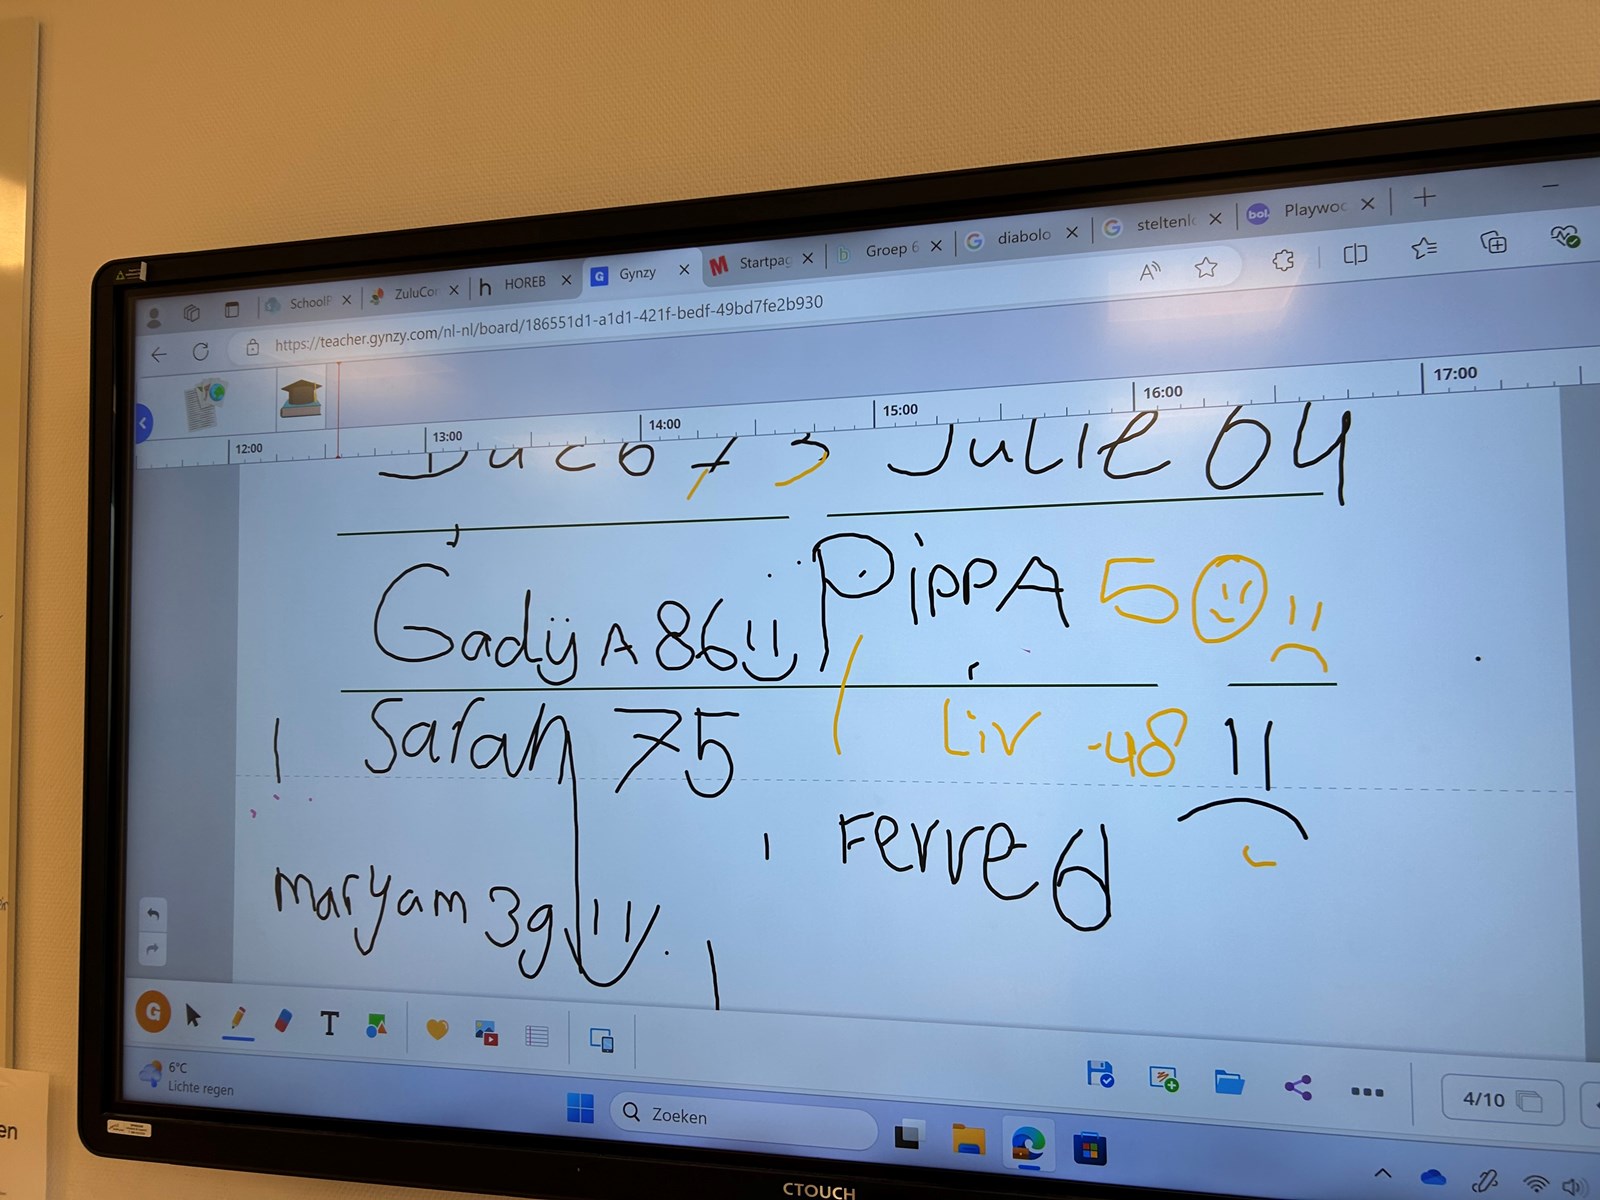 SchoolF
ZuluCor
HOREB
Gynzy
Startpag
Groep 6
diabolo
steltenlo
bol
Playwoo
https://teacher.gynzy.com/nl-nl/board/186551d1-a1d1-421f-bedf-49bd7fe2b930
12:00 13:00 14:00 15:00 16:00 17:00
Duco 73 Julie 64
Gadija 86 PippA 50
Sarah 75 Liv -48
Ferre 6
maryam 39
G T
6°C
Lichte regen
Zoeken
4/10
CTOUCH
en